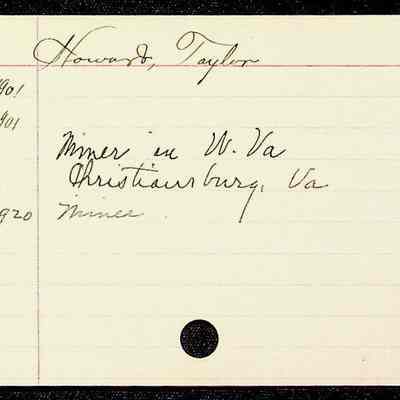 Howard, Taylor
901
901
Miner in W. Va
Christiansburg, Va
920 Miner